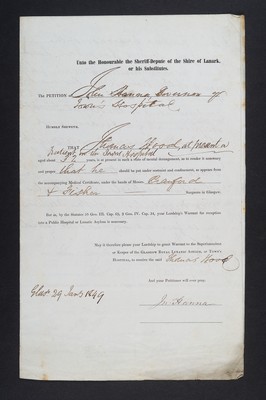 Unto the Honourable the Sheriff-Depute of the Shire of Lanark,
or his Substitutes.
The PETITION of John Hanna Governor of
Town's Hospital
HUMBLY SHEWETH,
THAT Thomas Wood, at present a
Patient in the Town's Hospital
aged about 52 years, is at present in such a state of mental derangement, as to render it necessary
and proper that he should be put under restraint and confinement, as appears from
the accompanying Medical Certificate, under the hands of Messrs. Crawford
& Fisher Surgeons in Glasgow.
But as, by the Statutes 55 Geo. III. Cap. 69, 9 Geo. IV. Cap. 34, your Lordship's Warrant for reception
into a Public Hospital or Lunatic Asylum is necessary,
May it therefore please your Lordship to grant Warrant to the Superintendent
or Keeper of the GLASGOW ROYAL LUNATIC ASYLUM, or TOWN'S
HOSPITAL, to receive the said Thomas Wood
Glasr 29 Jany 1849
And your Petitioner will ever pray.
Jn Hanna